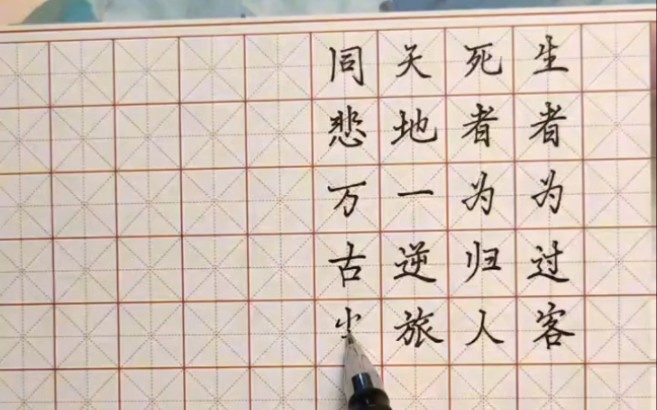 生者为过客
死者为归人
天地一逆旅
同悲万古